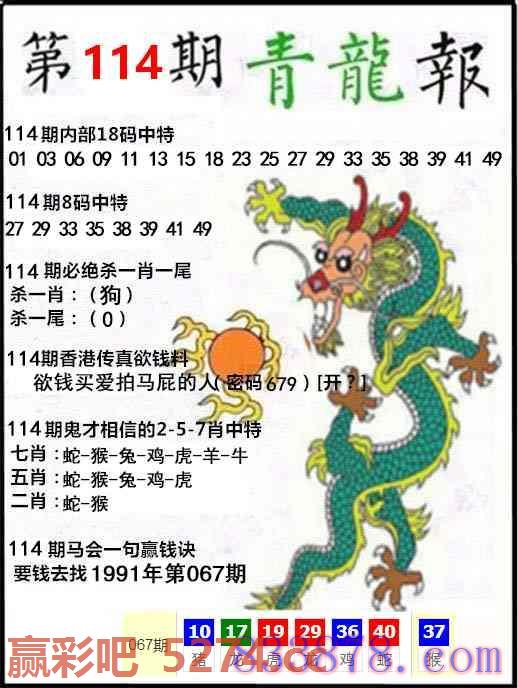 第114期青龍報
114期内部18码中特
01 03 06 09 11 13 15 18 23 25 27 29 33 35 38 39 41 49
114期8码中特
27 29 33 35 38 39 41 49
114期必绝杀一肖一尾
杀一肖：（狗）
杀一尾：（0）
114期香港传真欲钱料
欲钱买爱拍马屁的人（密码679）[开？]
114期鬼才相信的2-5-7肖中特
七肖：蛇-猴-兔-鸡-虎-羊-牛
五肖：蛇-猴-兔-鸡-虎
二肖：蛇-猴
114期马会一句赢钱诀
要钱去找1991年第067期
067期 10 17 19 29 36 40 37
猪 龙 虎 龙 鸡 蛇 猴
赢彩吧